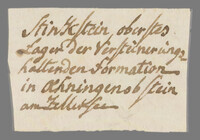 Stinkstein, oberstes
Lager der Verstinerung-
haltenden Formation
in Ohningen ob stein
am Zeller See